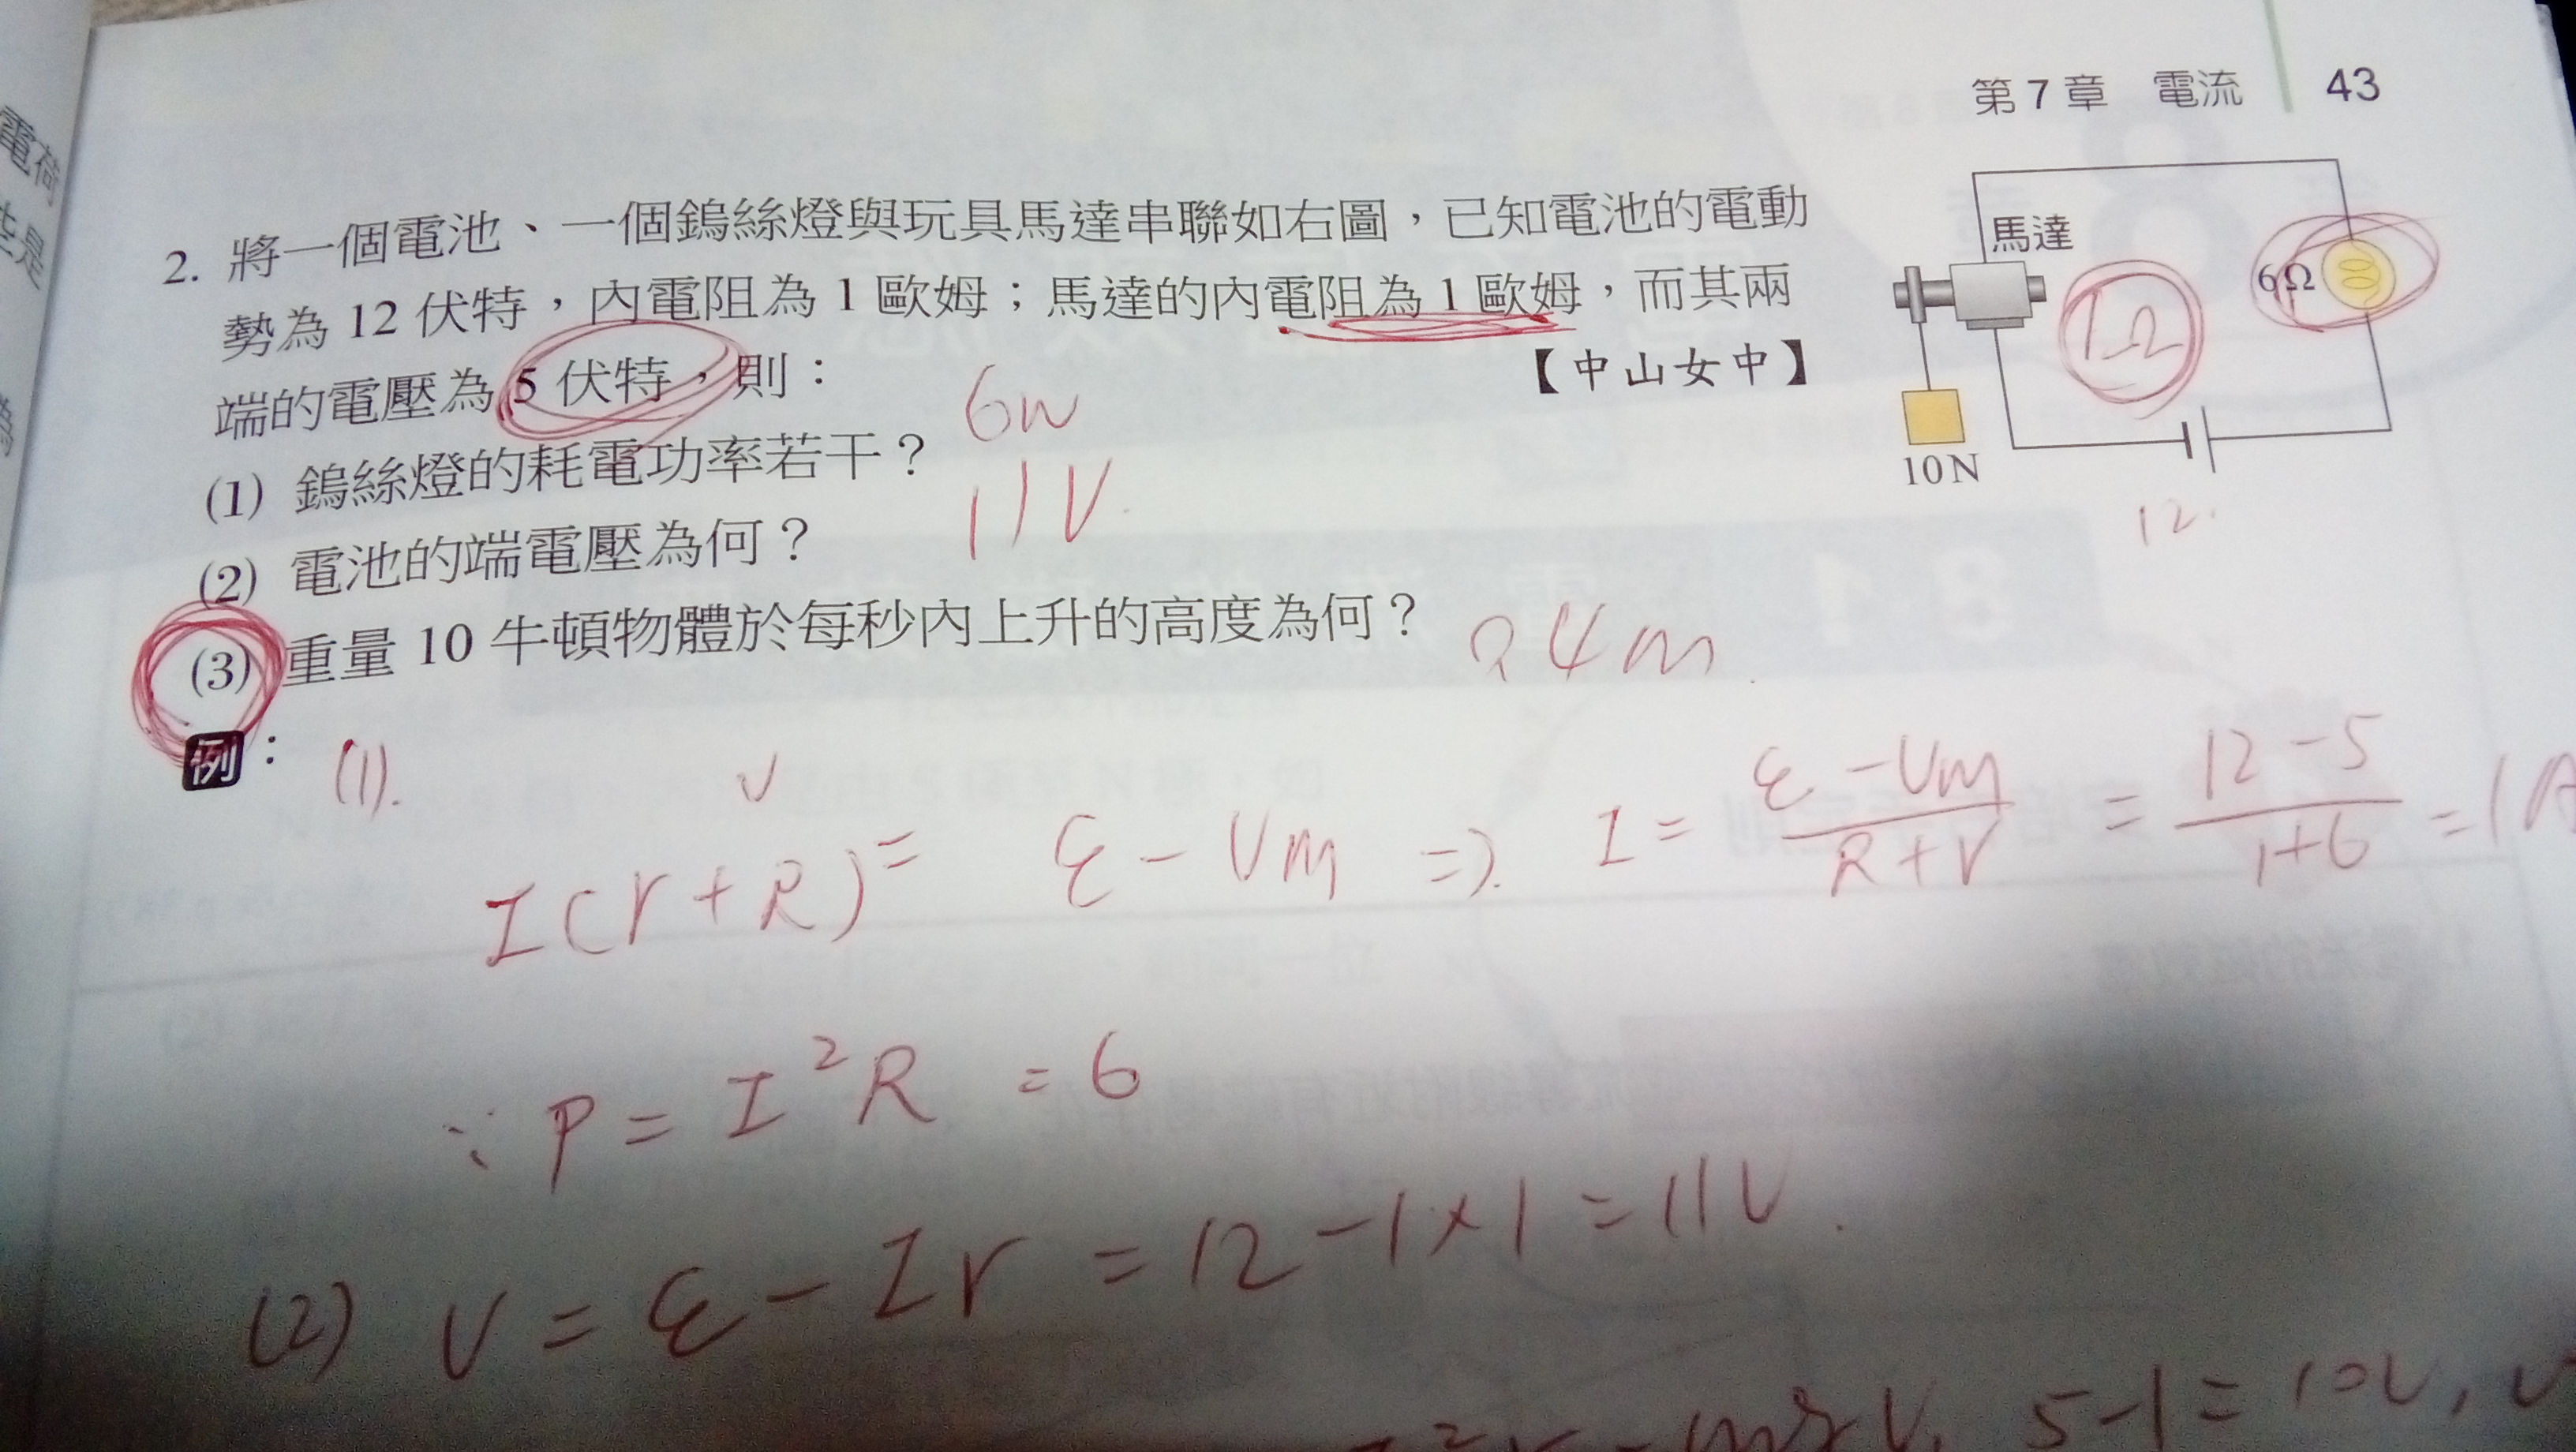 第7章 電流 43
2. 將一個電池、一個鎢絲燈與玩具馬達串聯如右圖，已知電池的電動
勢為 12 伏特，內電阻為 1 歐姆；馬達的內電阻為 1 歐姆，而其兩
端的電壓為 5 伏特，則：
【中山女中】
馬達
1Ω
6Ω
10N
12
(1) 鎢絲燈的耗電功率若干？ 6w
(2) 電池的端電壓為何？ 11V
(3) 重量 10 牛頓物體於每秒內上升的高度為何？ 0.4m
例：
(1).
I(r+R) = ε - Vm ⇒ I = (ε - Vm)/(R+r) = (12-5)/(1+6) = 1A
∴ P = I²R = 6
(2) V = ε - Ir = 12 - 1×1 = 11V
5-1 = 10V,